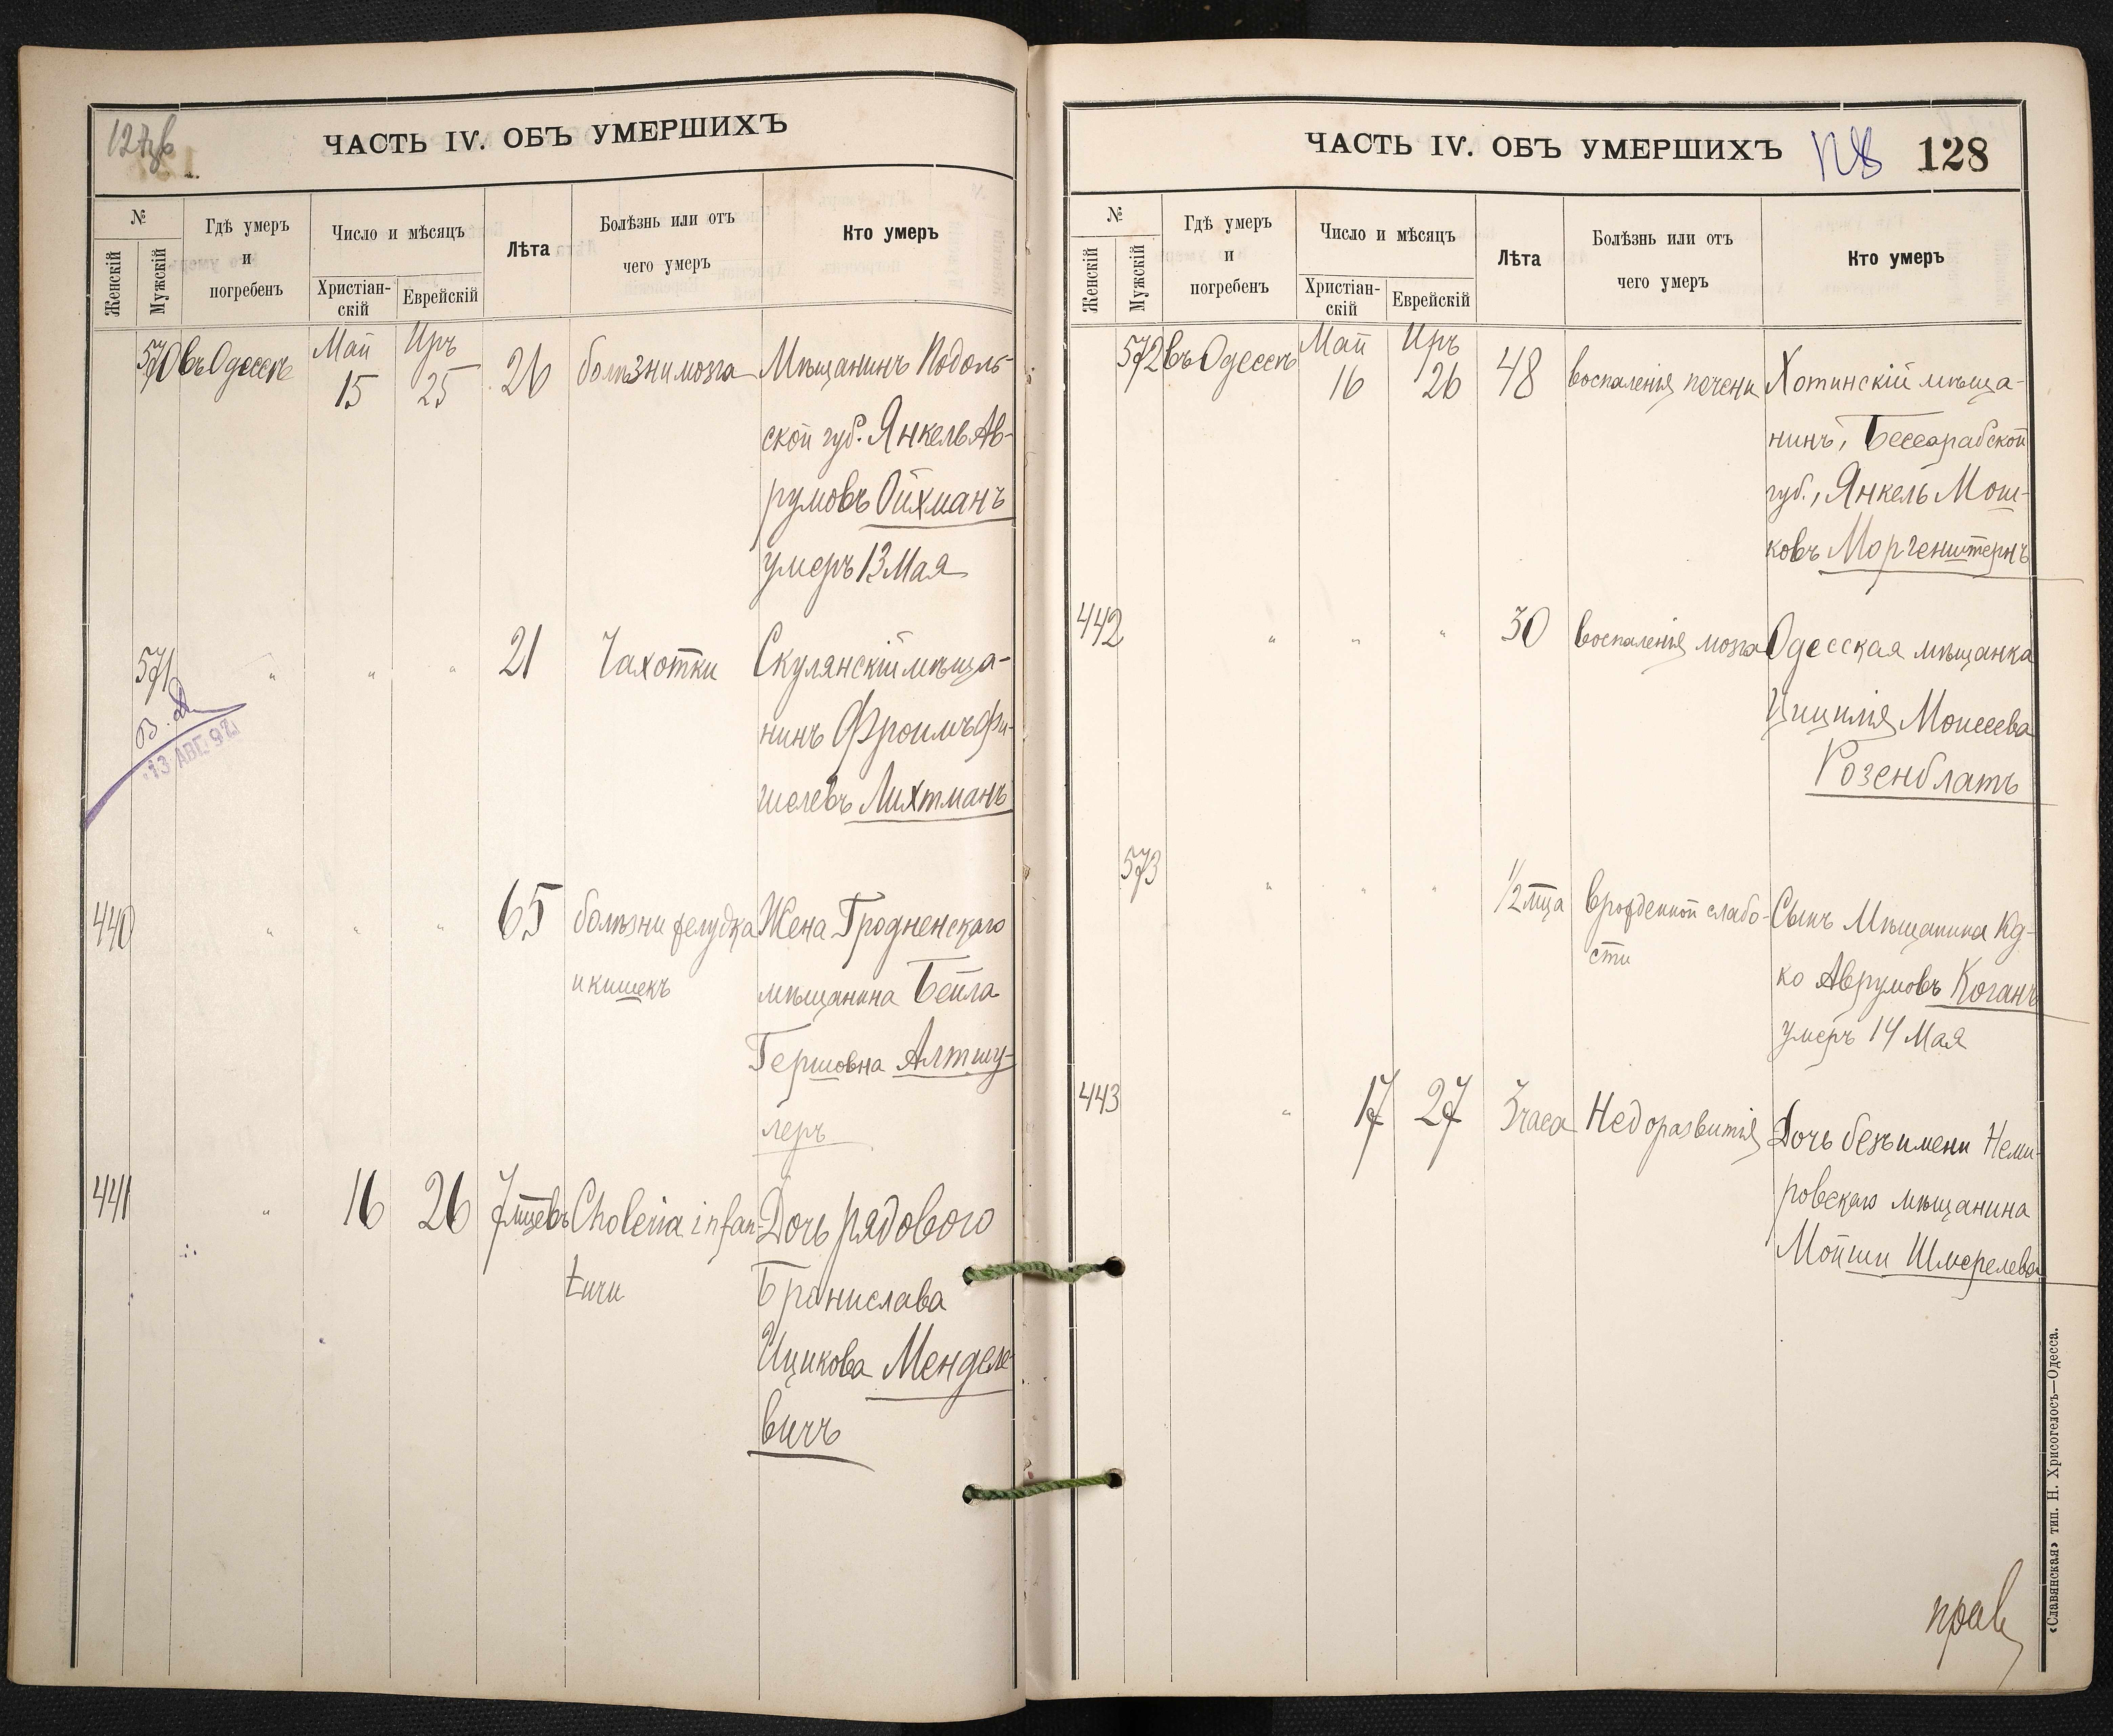 127об
ЧАСТЬ IV. ОБЪ УМЕРШИХЪ
№
Женскій
Мужскій
Гдѣ умеръ
и
погребенъ
Число и мѣсяцъ
Христіан-
скій
Еврейскій
Лѣта
Болѣзнь или отъ
чего умеръ
Кто умеръ
570 въ Одессѣ Май 15 Иръ 25 26 болѣзни мозга Мѣщанинъ Подоль-
ской губ. Янкель Ав-
румовъ Ойхманъ
умеръ 13 Мая
571 " " " 21 Чахотки Скулянскій мѣща-
нинъ Фроимъ Фи-
шелевъ Лихтманъ
13 АВГ 92
440 " " " 65 болѣзни желудка Жена Гродненскаго
и кишекъ мѣщанина Бейла
Гершовна Алтшу-
леръ
441 " 16 26 7 мцевъ Choleria infan- Дочь рядового
tichi Бранислава
Ицикова Менделе-
вичъ
ЧАСТЬ IV. ОБЪ УМЕРШИХЪ
128
№
Женскій
Мужскій
Гдѣ умеръ
и
погребенъ
Число и мѣсяцъ
Христіан-
скій
Еврейскій
Лѣта
Болѣзнь или отъ
чего умеръ
Кто умеръ
572 въ Одессѣ Май 16 Иръ 26 48 воспаленія печени Хотинскій мѣща-
нинъ, Бессарабской
губ., Янкель Мош-
ковъ Моргенштернъ
442 " " " 30 воспаленія мозга Одесская мѣщанка
Цицилія Моисеева
Розенблатъ
573 " " " 1/2 мца врожденной слабо- Сынъ Мѣщанина
сти ко Аврумовъ Коганъ
умеръ 14 Мая
443 " 17 27 3 часа Недоразвитія Дочь безъ имени Неми-
ровскаго мѣщанина
Мойши Шмерелева
«Славянская» тип. Н. Хрисогелосъ—Одесса.